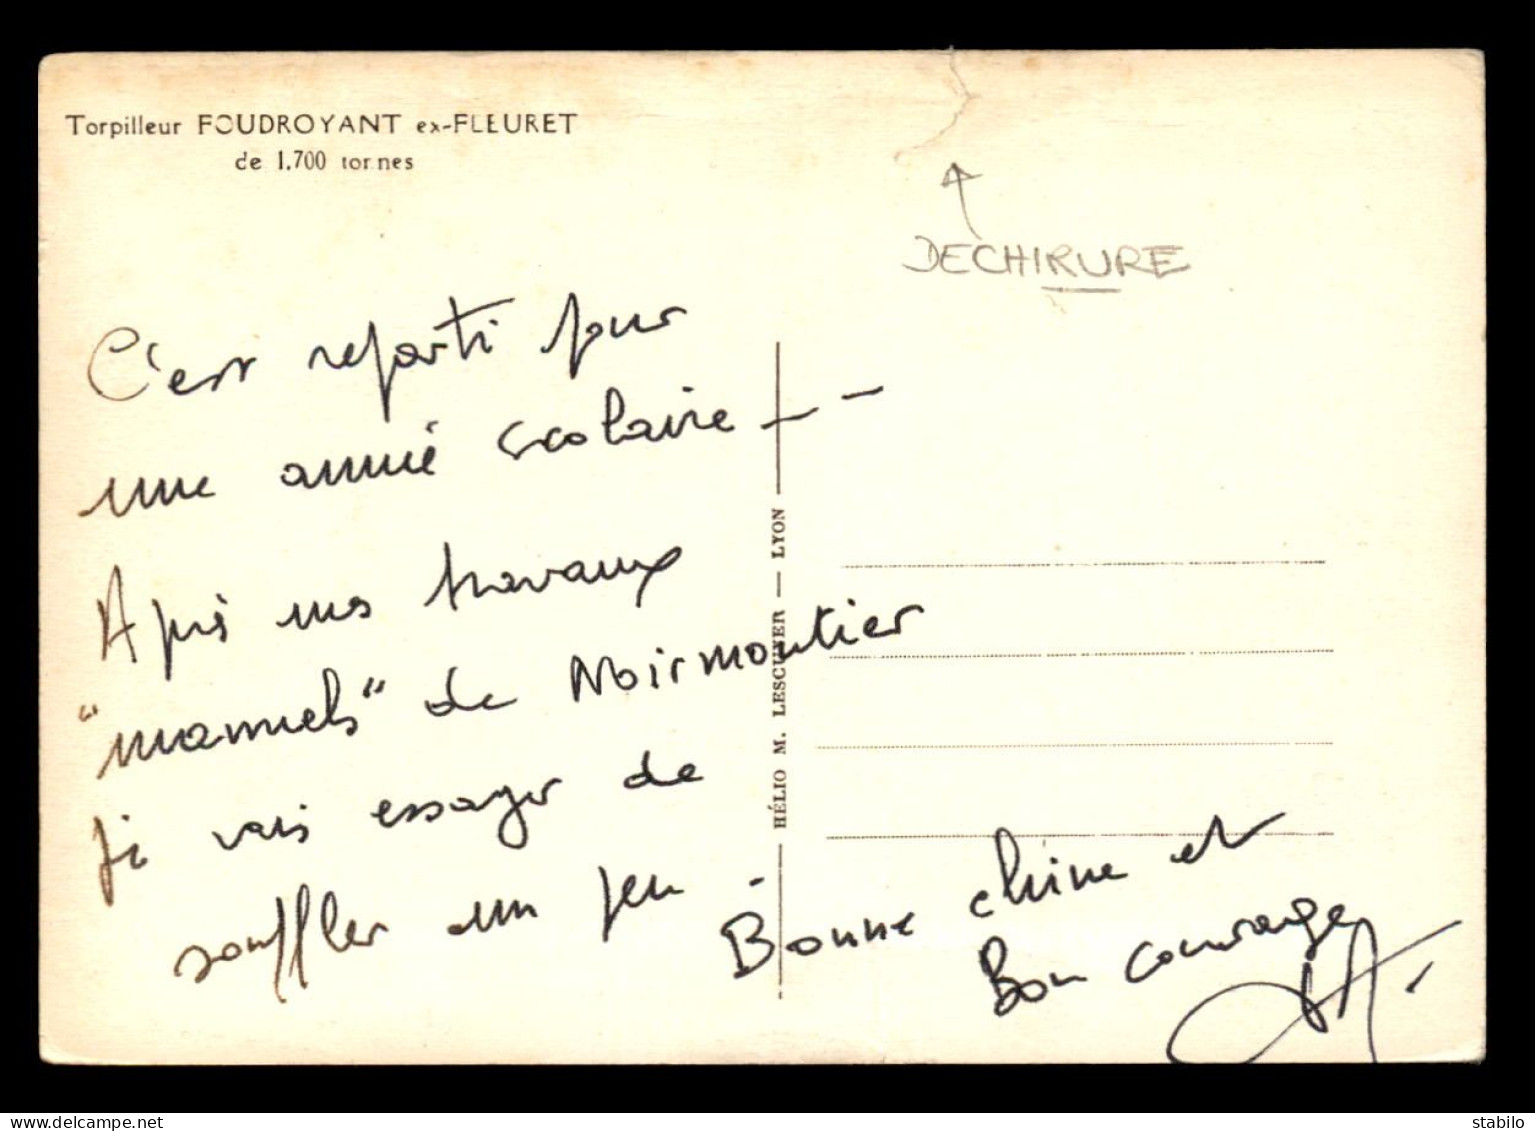 Torpilleur FOUDROYANT ex-FLEURET
de 1.700 tonnes
DECHIRURE
C'est reparti pour
une année scolaire - -
Après mes travaux
"manuels" de Noirmoutier
je vais essayer de
souffler un peu -
Bonne chine et
Bon courage
HÉLIO M. LESCUYER — LYON
delcampe.net
stabilo